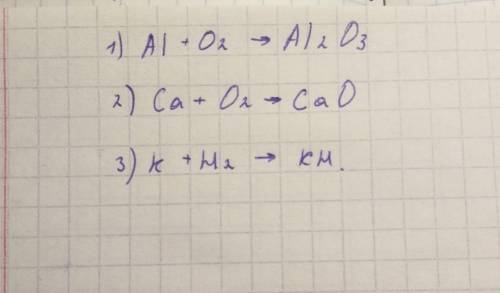 1) Al + O₂ → Al₂O₃
2) Ca + O₂ → CaO
3) K + H₂ → KH.